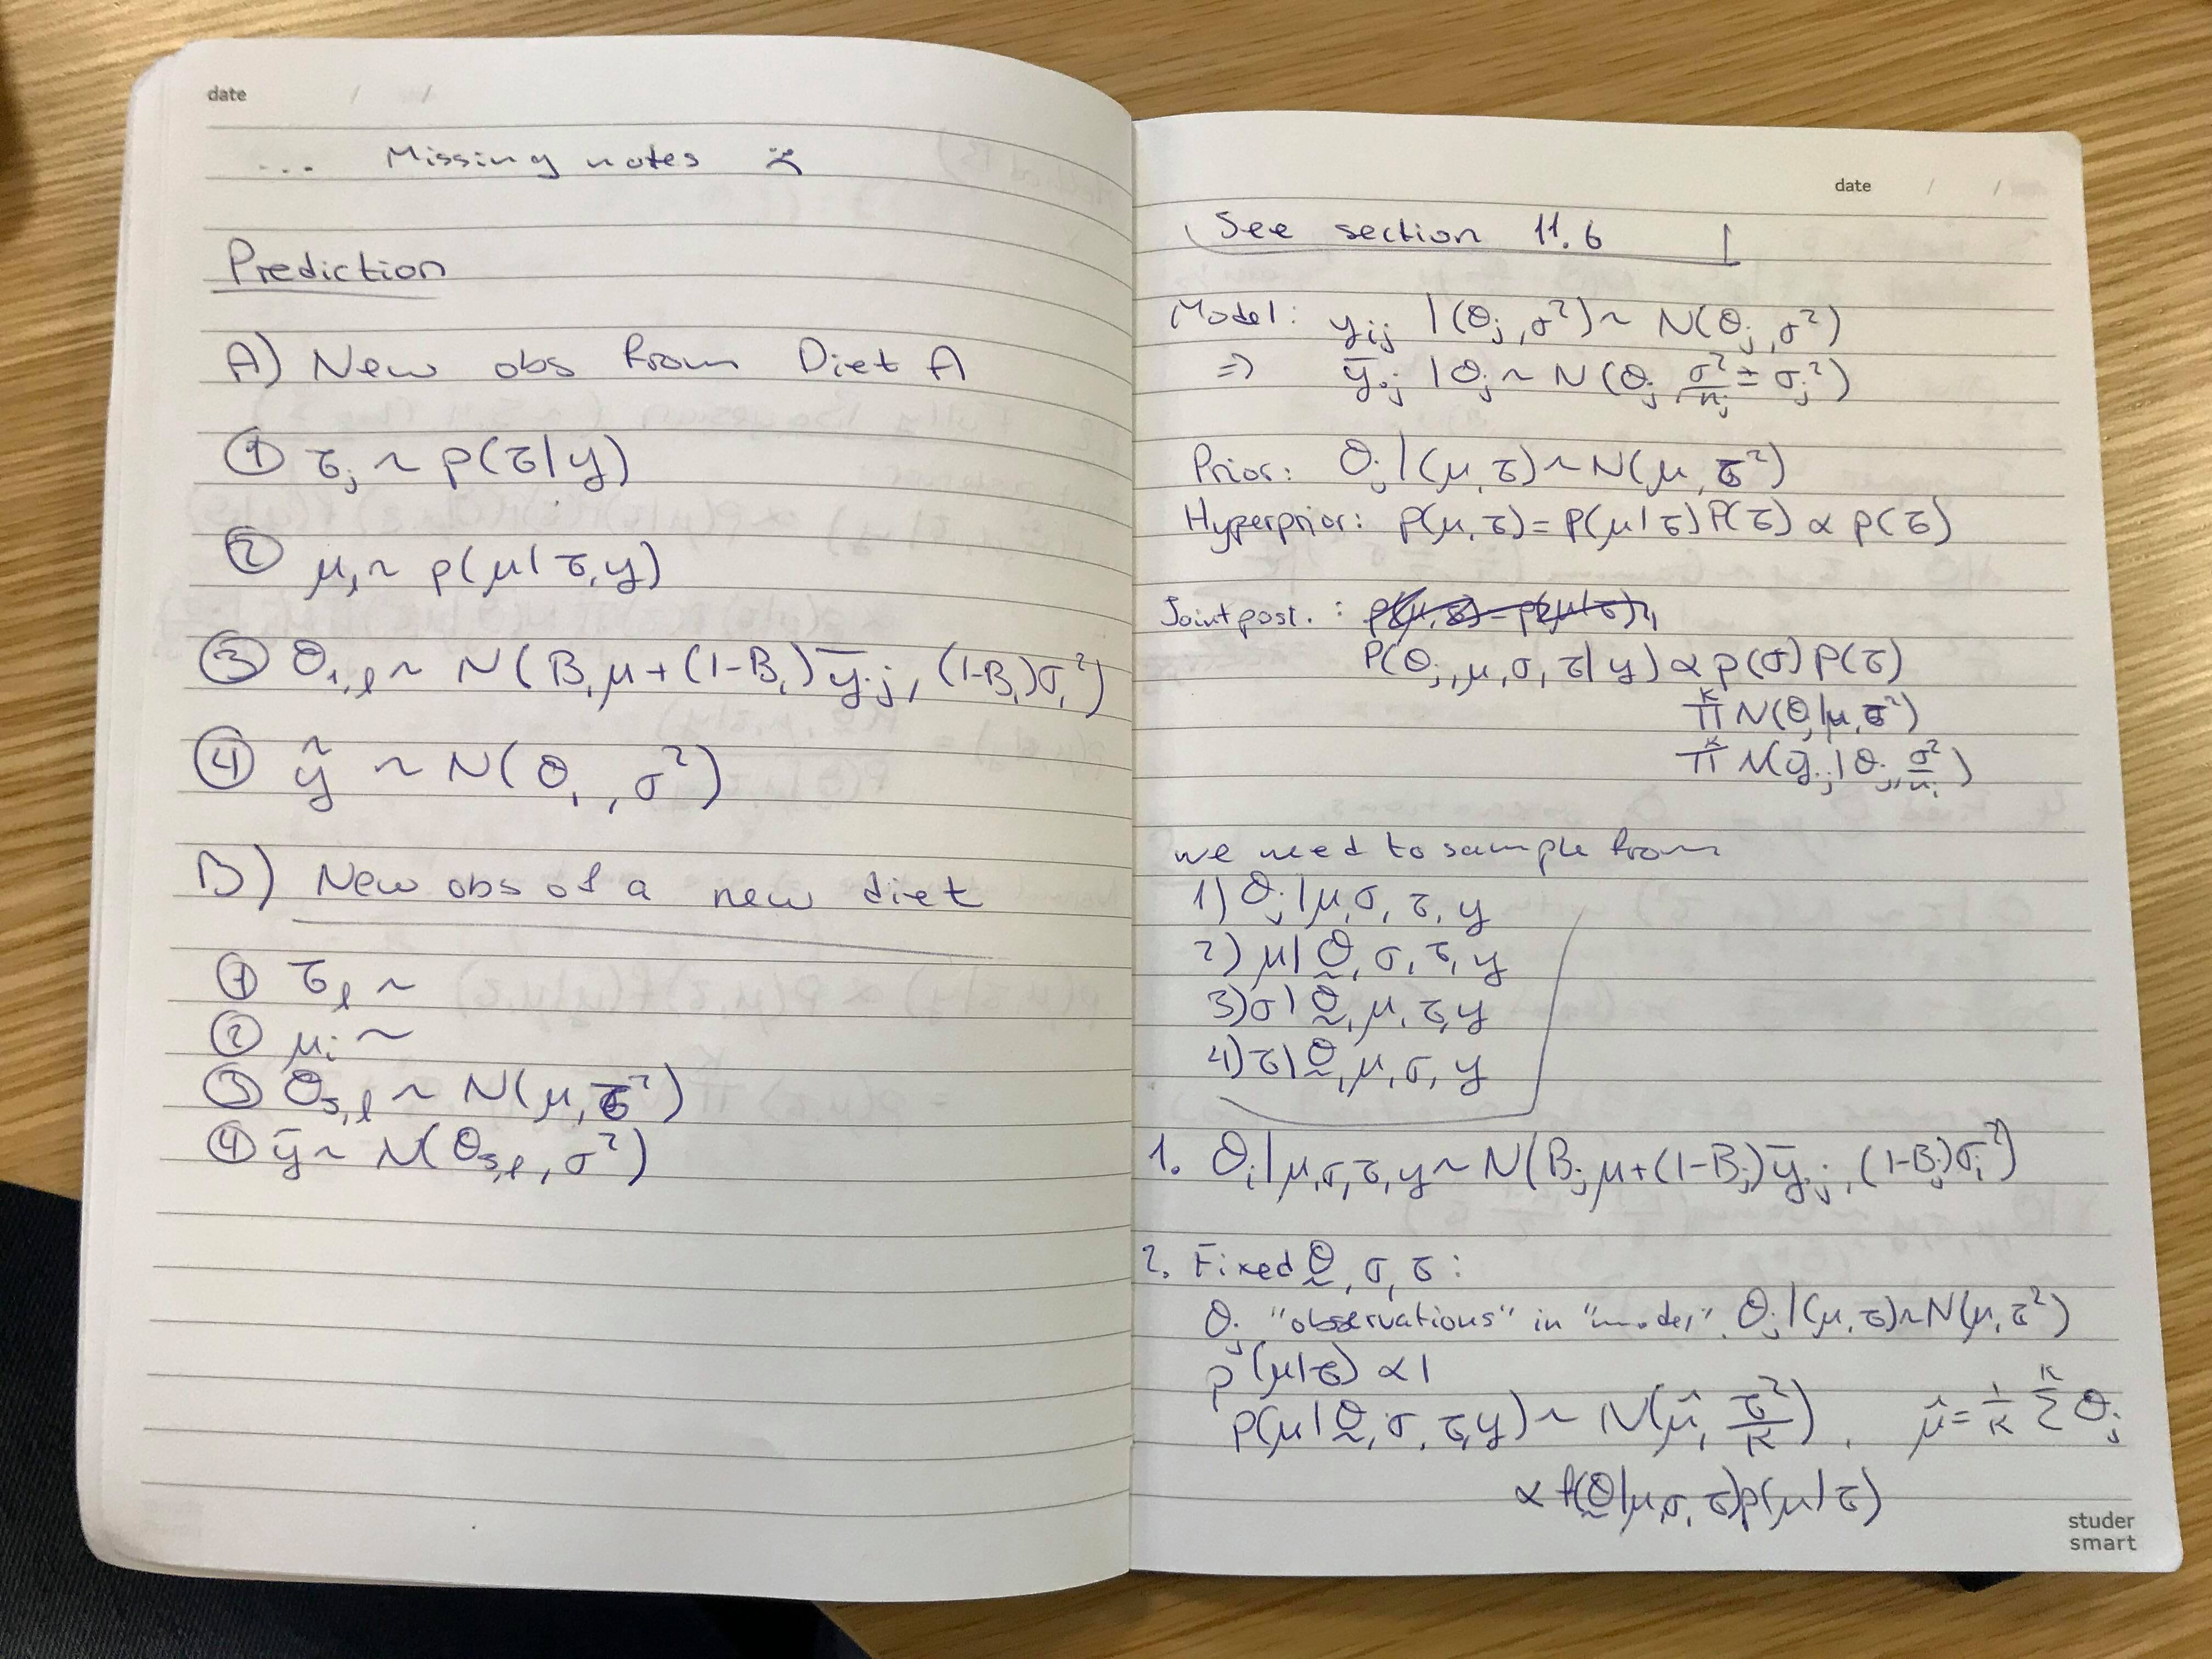 date / /
... Missing notes :(
Prediction
A) New obs from Diet A
① τⱼ ~ p(τ|y)
② μₗ ~ p(μ|τ,y)
③ θ₁,ₗ ~ N(B₁μ+(1-B₁)ȳ.ⱼ, (1-B₁)σ₁²)
④ ỹ ~ N(θ₁, σ²)
B) New obs of a new diet
① τₗ ~
② μᵢ ~
③ θ₅,ₗ ~ N(μ,τ²)
④ ȳ ~ N(θ₅,ₗ, σ²)
date / /
See section 11.6
Model: yᵢⱼ |(θⱼ,σ²) ~ N(θⱼ,σ²)
=> ȳ.ⱼ |θⱼ ~ N(θⱼ, σ²/nⱼ ± σⱼ²)
Prior: θⱼ|(μ,τ) ~ N(μ,τ²)
Hyperprior: p(μ,τ)=p(μ|τ)P(τ) ∝ p(τ)
Joint post. :
P(θⱼ,μ,σ,τ|y) ∝ p(σ)P(τ)
Πᴷ N(θⱼ|μ,τ²)
Πᴷ N(ȳ.ⱼ|θⱼ, σ²/nⱼ)
we need to sample from
1) θⱼ|μ,σ,τ,y
2) μ|θ̰,σ,τ,y
3) σ|θ̰,μ,τ,y
4) τ|θ̰,μ,σ,y
1. θⱼ|μ,σ,τ,y ~ N(Bⱼμ+(1-Bⱼ)ȳ.ⱼ, (1-Bⱼ)σⱼ²)
2. Fixed θ̰,σ,τ:
θⱼ "observations" in "model". θⱼ|(μ,τ) ~ N(μ,τ²)
p(μ|τ) ∝ 1
p(μ|θ̰,σ,τ,y) ~ N(μ̂, τ²/K), μ̂ = 1/K Σᴷ θⱼ
∝ f(θ̰|μ,σ,τ)p(μ|τ)
studer
smart